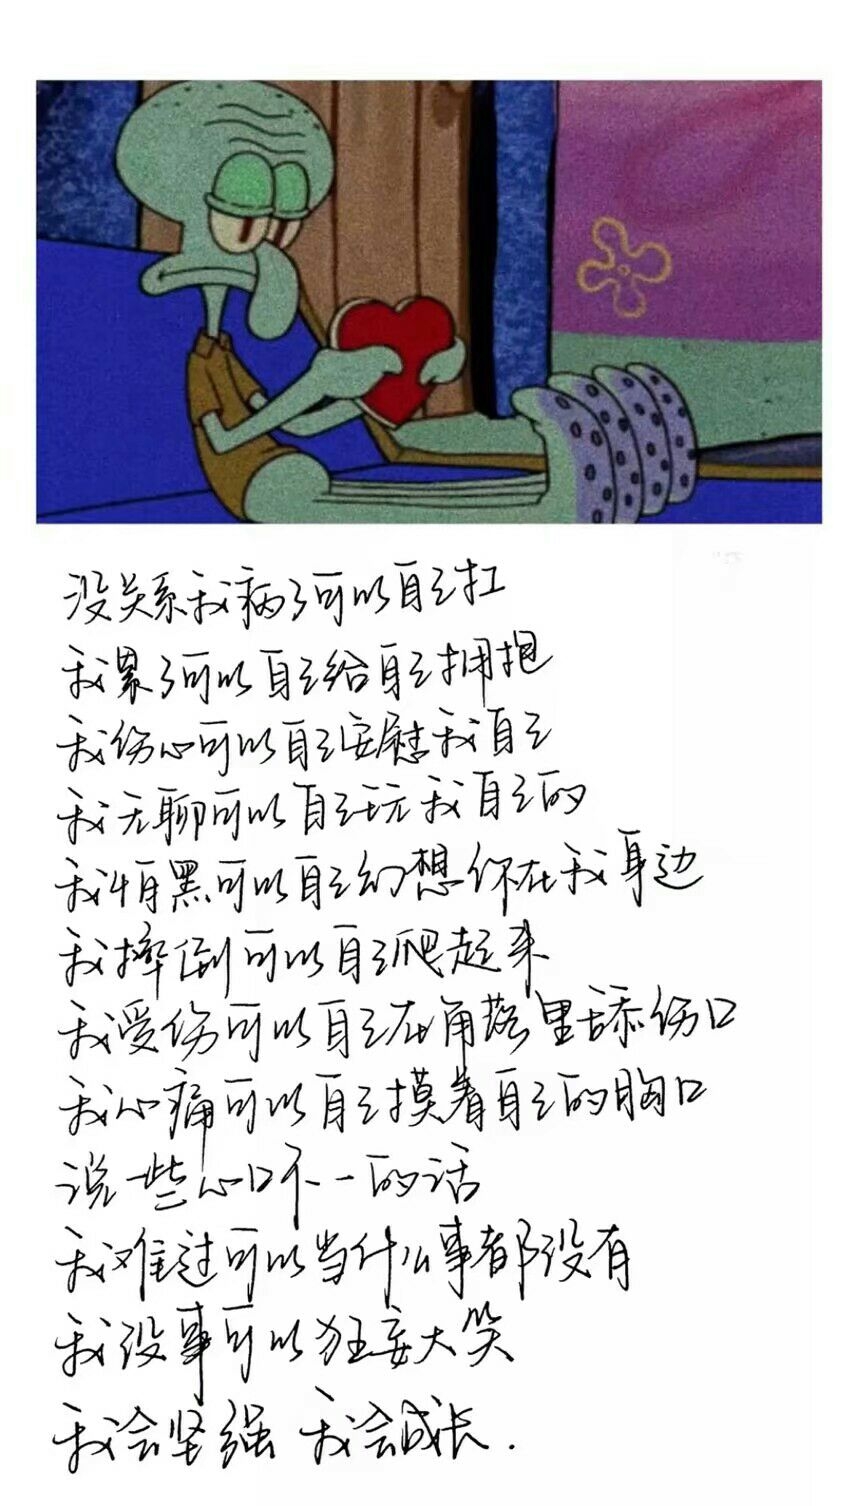 没关系我病了可以自己扛
我累了可以自己给自己拥抱
我伤心可以自己安慰我自己
我无聊可以自己玩我自己的
我怕黑可以自己幻想你在我身边
我摔倒可以自己爬起来
我受伤可以自己在角落里舔伤口
我心痛可以自己摸着自己的胸口
说一些心口不一的话
我难过可以当什么事都没有
我没事可以狂妄大笑
我会坚强 我会成长.